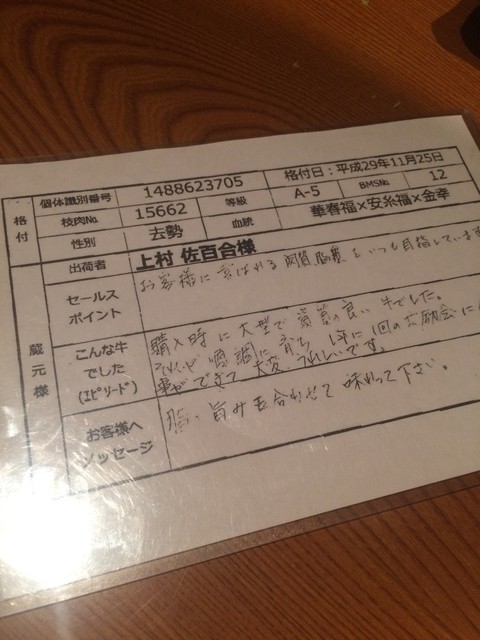 格付
個体識別番号 1488623705 格付日：平成29年11月25日
枝肉No. 15662 等級 A-5 BMSNo. 12
性別 去勢 血統 華春福×安糸福×金幸
蔵元様
出荷者 上村 佐百合様
セールスポイント お客様に喜ばれる肉質 脂質をいつも目指しています
こんな牛でした(エピソード) 購入時に大型で資質の良い牛でした。
順調に育ち 1年に1回の共励会に
事ができて大変うれしいです。
お客様へメッセージ 脂、旨みを合わせて味わって下さい。